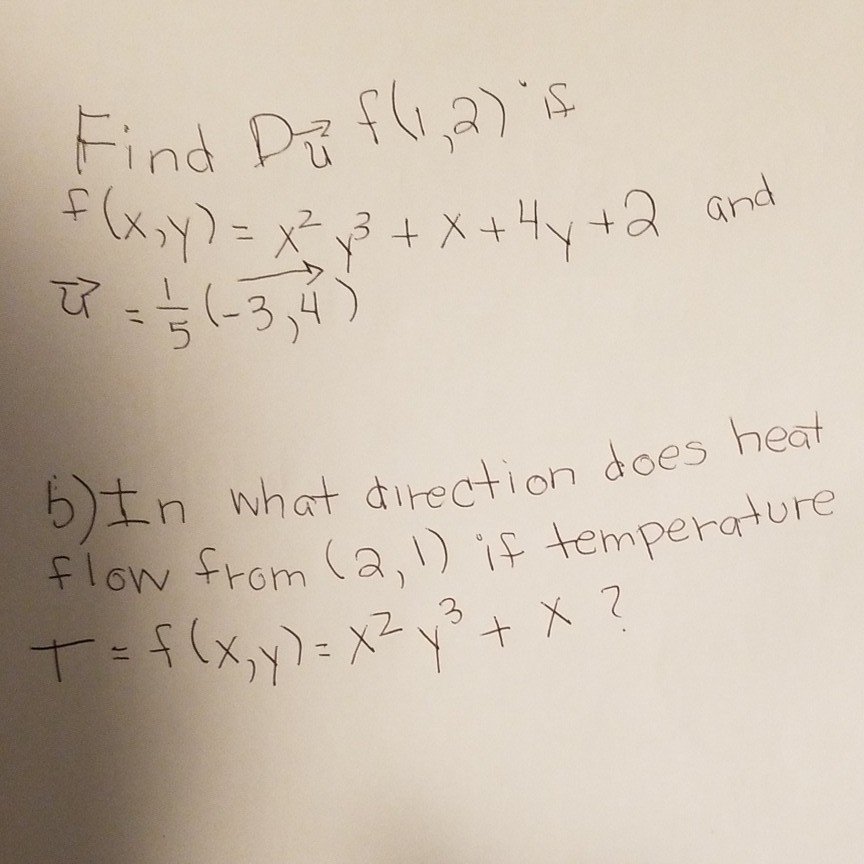 Find D𝑢⃗ f(1,2) if
f(x,y) = x² y³ + x + 4y + 2 and
u⃗ = 1/5 (-3,4)
b) In what direction does heat
flow from (2,1) if temperature
T = f(x,y) = x² y³ + x ?